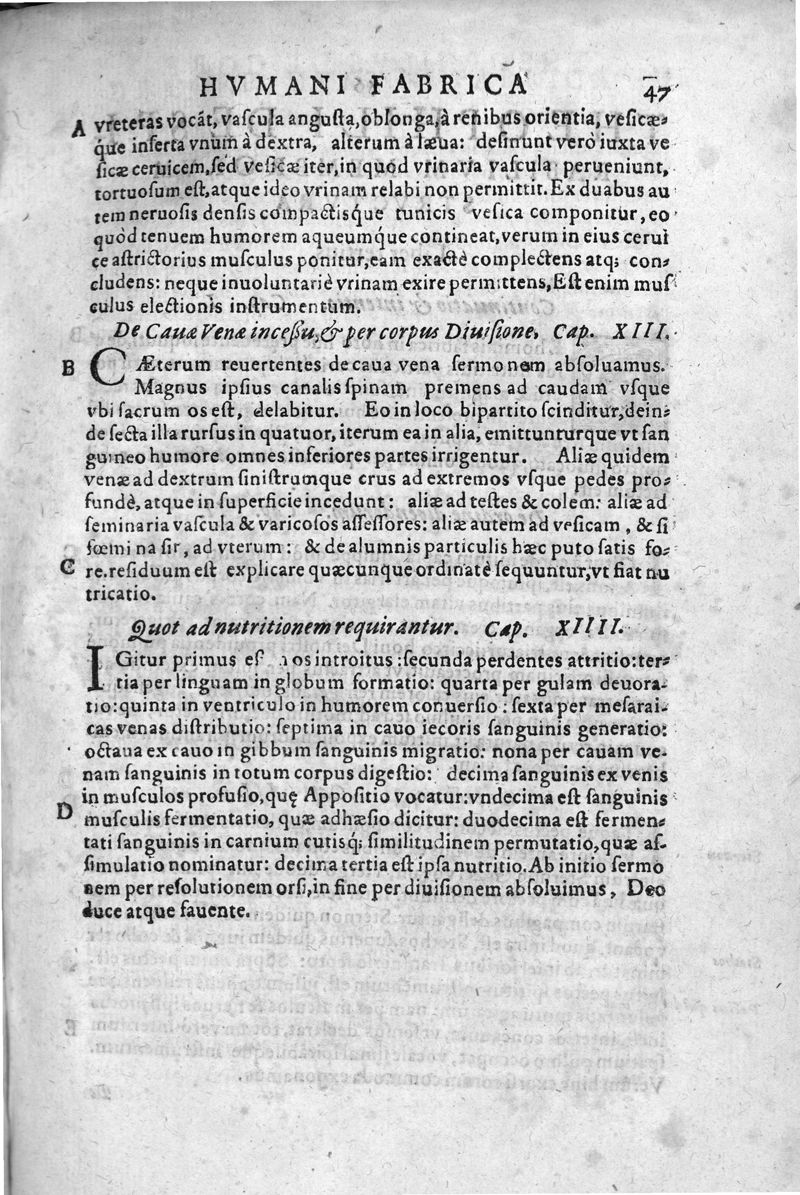 HVMANI FABRICA 47
A vreteras vocāt, vaſcula anguſta, oblonga, à renibus orientia, veſicæ-
q́ue inſerta vnum à dextra, alterum à læua: deſinunt verò iuxta ve
ſicæ ceruicem, ſed veſicæ iter, in quod vrinaria vaſcula perueniunt,
tortuoſum eſt, atque ideo vrinam relabi non permittit. Ex duabus au
tem neruoſis denſis compactisq́ue tunicis veſica componitur, eo
quòd tenuem humorem aqueumq́ue contineat, verum in eius cerui
ce aſtrictorius muſculus ponitur, eam exactè complectens atq; con-
cludens: neque inuoluntariè vrinam exire permittens, Eſt enim muſ
culus electionis inſtrumentum.
De Caua Vena inceſſu, & per corpus Diuiſione, Cap. XIII.
B CÆterum reuertentes de caua vena ſermonem abſoluamus.
Magnus ipſius canalis ſpinam premens ad caudam vſque
vbi ſacrum os eſt, delabitur. Eo in loco bipartito ſcinditur, dein-
de ſecta illa rurſus in quatuor, iterum ea in alia, emittunturque vt ſan
guineo humore omnes inferiores partes irrigentur. Aliæ quidem
venæ ad dextrum ſiniſtrumque crus ad extremos vſque pedes pro-
fundè, atque in ſuperficie incedunt: aliæ ad teſtes & colem: aliæ ad
ſeminaria vaſcula & varicoſos aſſeſſores: aliæ autem ad veſicam, & ſi
fœmina ſit, ad vterum: & de alumnis particulis hæc puto ſatis fo-
C re. reſiduum eſt explicare quæcunque ordinatè ſequuntur, vt fiat nu
tricatio.
Quot ad nutritionem requirantur. Cap. XIIII.
IGitur primus eſ os introitus: ſecunda per dentes attritio: ter-
tia per linguam in globum formatio: quarta per gulam deuora-
tio: quinta in ventriculo in humorem conuerſio: ſexta per meſarai-
cas venas diſtributio: ſeptima in cauo iecoris ſanguinis generatio:
octaua ex cauo in gibbum ſanguinis migratio: nona per cauam ve-
nam ſanguinis in totum corpus digeſtio: decima ſanguinis ex venis
in muſculos profuſio, quę Appoſitio vocatur: vndecima eſt ſanguinis
D muſculis fermentatio, quæ adhæſio dicitur: duodecima eſt fermen-
tati ſanguinis in carnium cutisq; ſimilitudinem permutatio, quæ aſ-
ſimulatio nominatur: decima tertia eſt ipſa nutritio. Ab initio ſermo
nem per reſolutionem orſi, in fine per diuiſionem abſoluimus, Deo
duce atque fauente.